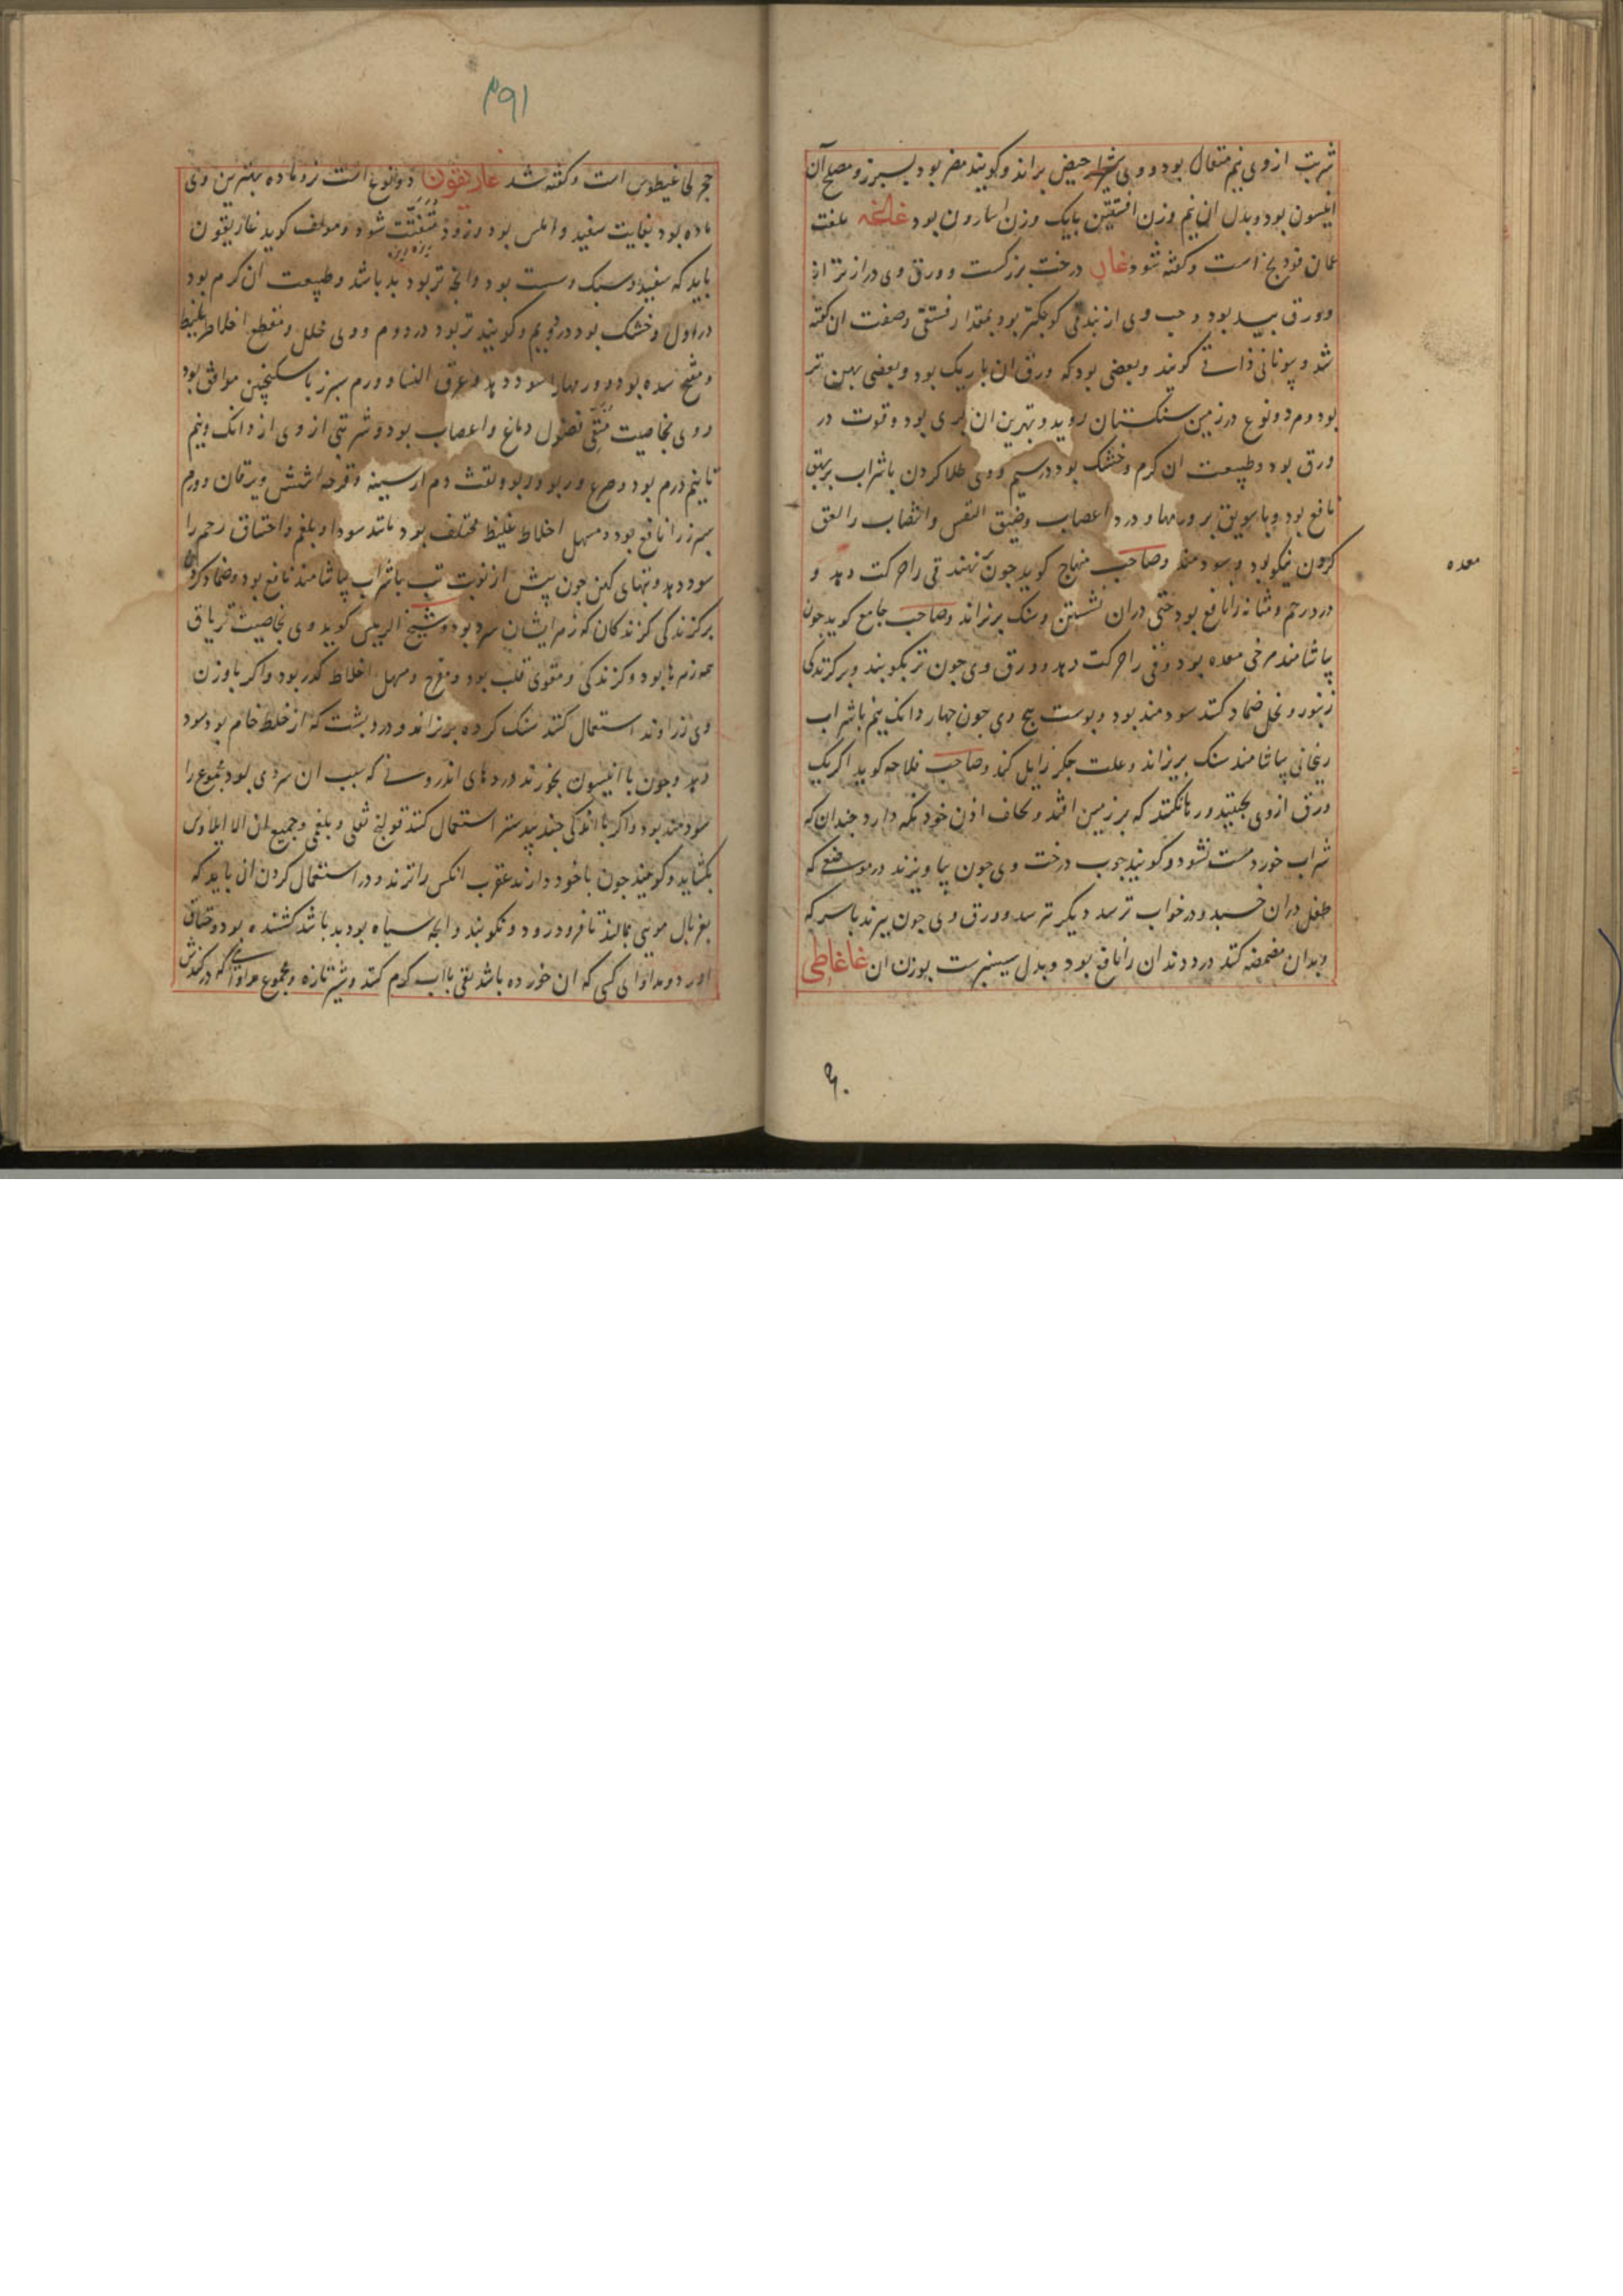 شربت ازوی نیم مثقال بود ووی حیض براند وکویند مضر بود بسپرز و مصلح آن
انیسون بود وبدل ان نیم وزن افسنتین بایک وزن اسارون بود غاغه بلغت
عمان فودنج است وکفته شود غار درخت بزرکست و ورق وی درازتر از
ورق بید بود و حب وی از بندقی کوجکتر بود بمقدار فستقی وصفت ان کفته
شد و یونانی گویند وبعضی بود که ورق ان باریک بود وبعضی پهن تر
بود وهردو نوع درزمین سنکستان روید و بهترین ان بری بود وقوت در
ورق بود وطبیعت ان کرم وخشک بود درسیم ووی طلا کردن باشراب بربهق
نافع بود وبا سویق بر ورمها و درد اعصاب وضیق النفس وانتصاب را لعق
کردن نیکو بود و سودمند وصاحب منهاج کوید جون نهند قی را حرکت دهد و
درد رحم ومثانه را نافع بود حتی دران نشستن وسنک بریزاند وصاحب جامع کوید جون
بیاشامند مرخی معده بود وقی را حرکت دهد و ورق وی جون تر بکوبند وبر کزندکی
زنبور و نحل ضماد کنند سودمند بود وپوست بیخ وی جون جهار دانک نیم باشراب
ریحانی بیاشامند سنک بریزاند وعلت جکر زایل کند وصاحب فلاحه کوید اکر یک
ورق ازوی بجینند و رها نکنند که بر زمین افتد و بخلف اذن خود نکه دارد جندان که
شراب خورد مست نشود وکویند جوب درخت وی جون بیاویزند درموضعی که
طفل دران خسبد ودرخواب ترسد دیکر نترسد و ورق وی جون بپزند باسرکه
وبدان مضمضه کنند درد دندان را نافع بود وبدل سیسنبرست بوزن ان غاغاطی
معده
۶۰
۳۹۱
حجر غاغیطوس است وکفته شد غاریقون دو نوع است نر وماده بهترین وی
ماده بود بغایت سفید واملس بود وزود متفتت شود ومولف کوید غاریقون
ریزه ریزه
باید که سفید وسبک وسست بود وانچه تر بود بد باشد وطبیعت ان کرم بود
دراول وخشک بود دردویم وکویند تر بود در دوم ووی محلل ومقطع اخلاط غلیظ
ومفتح سده بود و ورمها را سود دهد وعرق النسا و ورم سپرز با سکنجبین موافق بود
ووی بخاصیت منقی فضول دماغ واعصاب بود وشربتی ازوی از دانک ونیم
تانیم درم بود وصرع وربو ونفث دم از سینه وقرحه شش ویرقان وورم
سپرز را نافع بود ومسهل اخلاط غلیظ مختلف بود مانند سودا وبلغم واختناق رحم را
سود دهد وتبهای کهن جون پیش از نوبت تب باشراب بیاشامند نافع بود وضماد کردن
برکزندکی کزندکان که زهر ایشان سرد بود وشیخ الرییس کوید وی بخاصیت تریاق
همه زهرها بود وکزندکی ومقوی قلب بود ومفرح ومسهل اخلاط کدر بود واکر باوزن
وی زراوند استعمال کنند سنک کرده بریزاند ودرد پشت که از خلط خام بود سود
دهد وجون با انیسون بخورند دردهای اندرونی که سبب ان سردی بود مجموع را
سودمند بود واکر با اندکی جندبیدستر استعمال کنند قولنج ثفلی وبلغمی وجمیع ان الا ایلاوس
بکشاید وکویند جون باخود دارند عقرب انکس را نزند ودر استعمال کردن ان باید که
بغربال مویی بمالند تا فرو درود ونکوبند وانچه سیاه بود بد باشد کشنده بود وخناق
اورد ومداوای کسی که ان خورده باشد بقی با آب کرم کنند وشیر تازه ومجموع مداواتی که درکندش